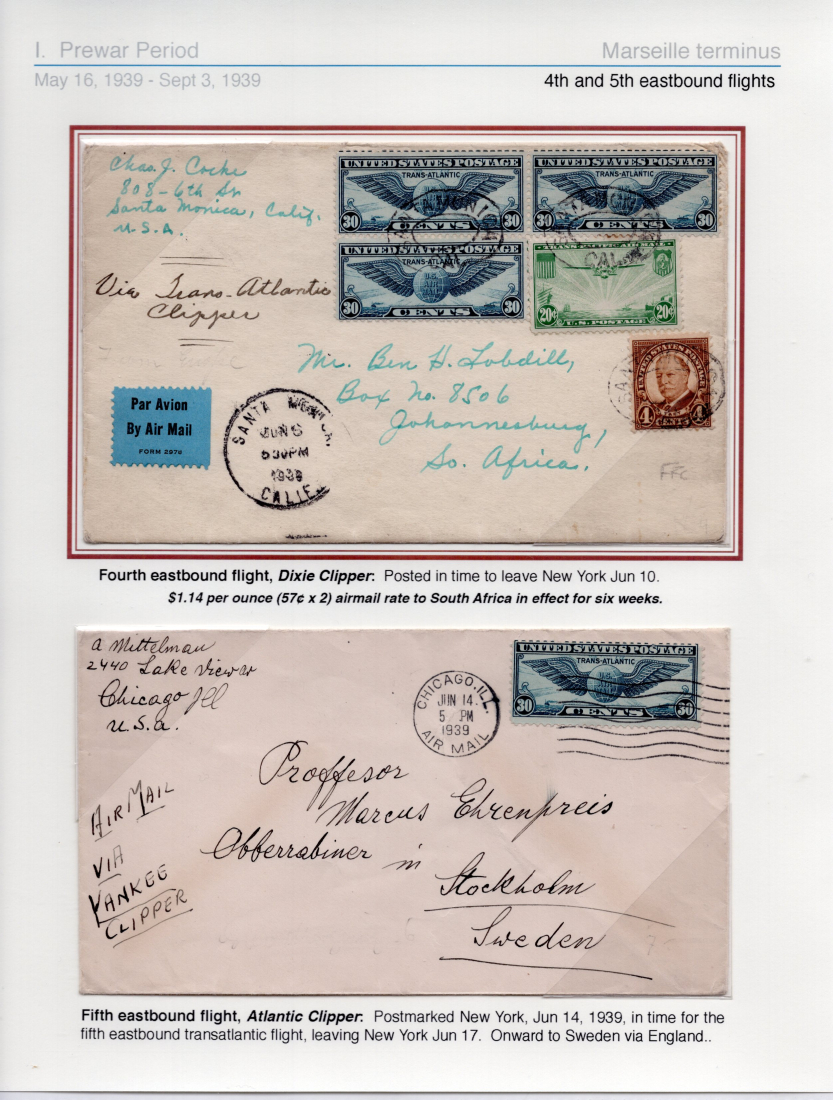 I. Prewar Period
Marseille terminus
May 16, 1939 - Sept 3, 1939
4th and 5th eastbound flights
Chas. J. Cocke
808 - 6th St
Santa Monica, Calif.
U.S.A.
Via Trans-Atlantic
Clipper
UNITED STATES POSTAGE
TRANS-ATLANTIC
30 CENTS 30
UNITED STATES POSTAGE
TRANS-ATLANTIC
30 CENTS 30
UNITED STATES POSTAGE
TRANS-ATLANTIC
30 CENTS 30
TRANS-PACIFIC AIR MAIL
20¢ U.S. POSTAGE 20¢
SANTA MONICA
CALIF.
SANTA MONICA
CALIF.
UNITED STATES POSTAGE
TAFT
4 CENTS 4
Mr. Ben H. Lobdill,
Box No. 8506
Johannesburg,
So. Africa.
Par Avion
By Air Mail
FORM 2978
SANTA MONICA,
JUN 6
530PM
1939
CALIF.
FFC
Fourth eastbound flight, Dixie Clipper: Posted in time to leave New York Jun 10.
$1.14 per ounce (57¢ x 2) airmail rate to South Africa in effect for six weeks.
A Mittelman
2440 Lake View
Chicago Ill
U.S.A.
CHICAGO, ILL.
JUN 14
5 PM
1939
AIR MAIL
UNITED STATES POSTAGE
TRANS-ATLANTIC
30 CENTS 30
Proffesor
Marcus Ehrenpreis
Obberrabiner in
Stockholm
Sweden
AIR MAIL
VIA
YANKEE
CLIPPER
Fifth eastbound flight, Atlantic Clipper: Postmarked New York, Jun 14, 1939, in time for the
fifth eastbound transatlantic flight, leaving New York Jun 17. Onward to Sweden via England..